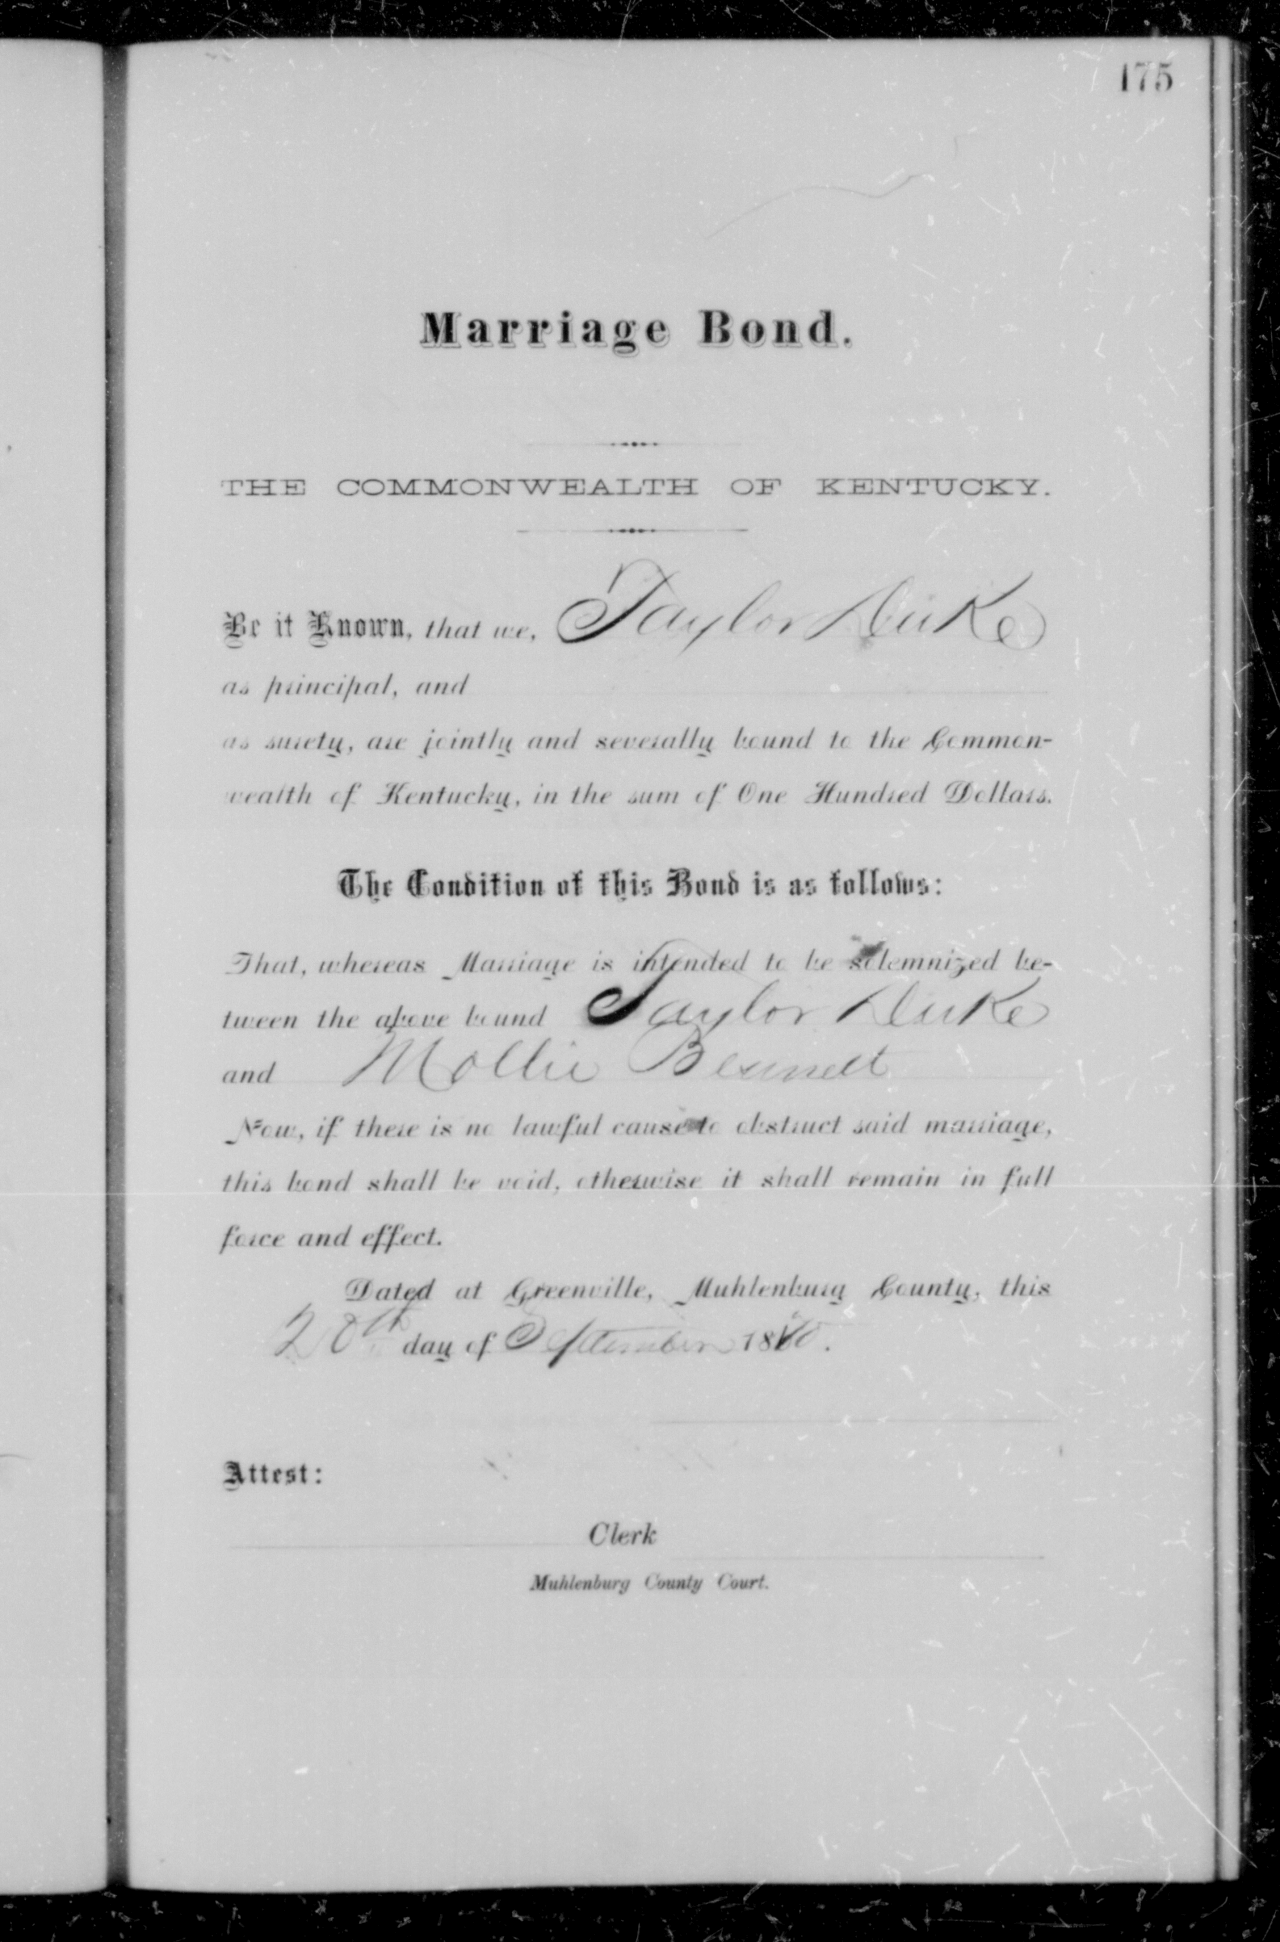 175
Marriage Bond.
THE COMMONWEALTH OF KENTUCKY.
Be it Known, that we, Taylor Duke
as principal, and
as surety, are jointly and severally bound to the Common-
wealth of Kentucky, in the sum of One Hundred Dollars.
The Condition of this Bond is as follows:
That, whereas Marriage is intended to be solemnized be-
tween the above bound Taylor Duke
and Mollie Bennett
Now, if there is no lawful cause to obstruct said marriage,
this bond shall be void, otherwise it shall remain in full
force and effect.
Dated at Greenville, Muhlenburg County, this
28th day of September 1880.
Attest:
Clerk
Muhlenburg County Court.